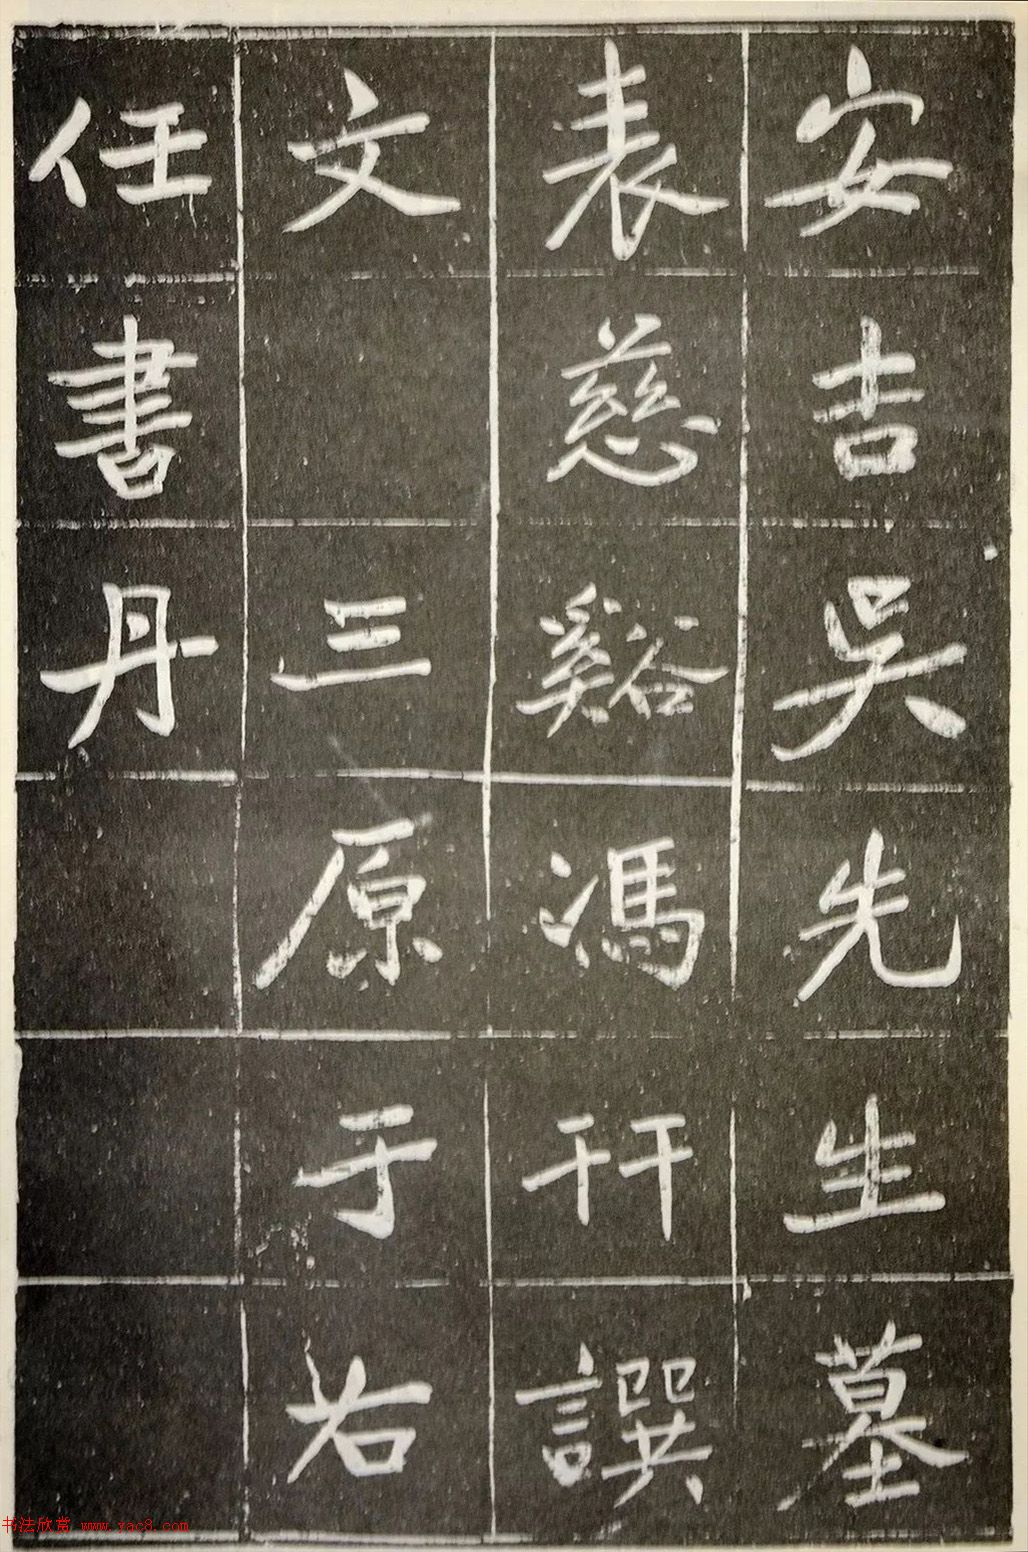 安吉吳先生墓
表慈谿馮幵譔
文三原于右
任書丹
书法欣赏 www.yac8.com